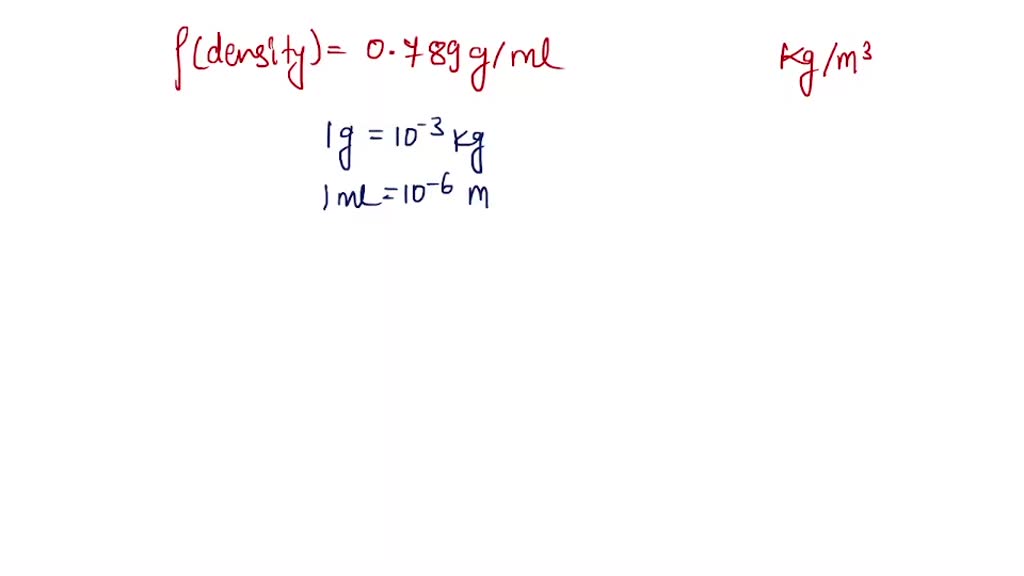 ρ(density) = 0.789 g/ml kg/m³
1g = 10⁻³ kg
1 ml = 10⁻⁶ m